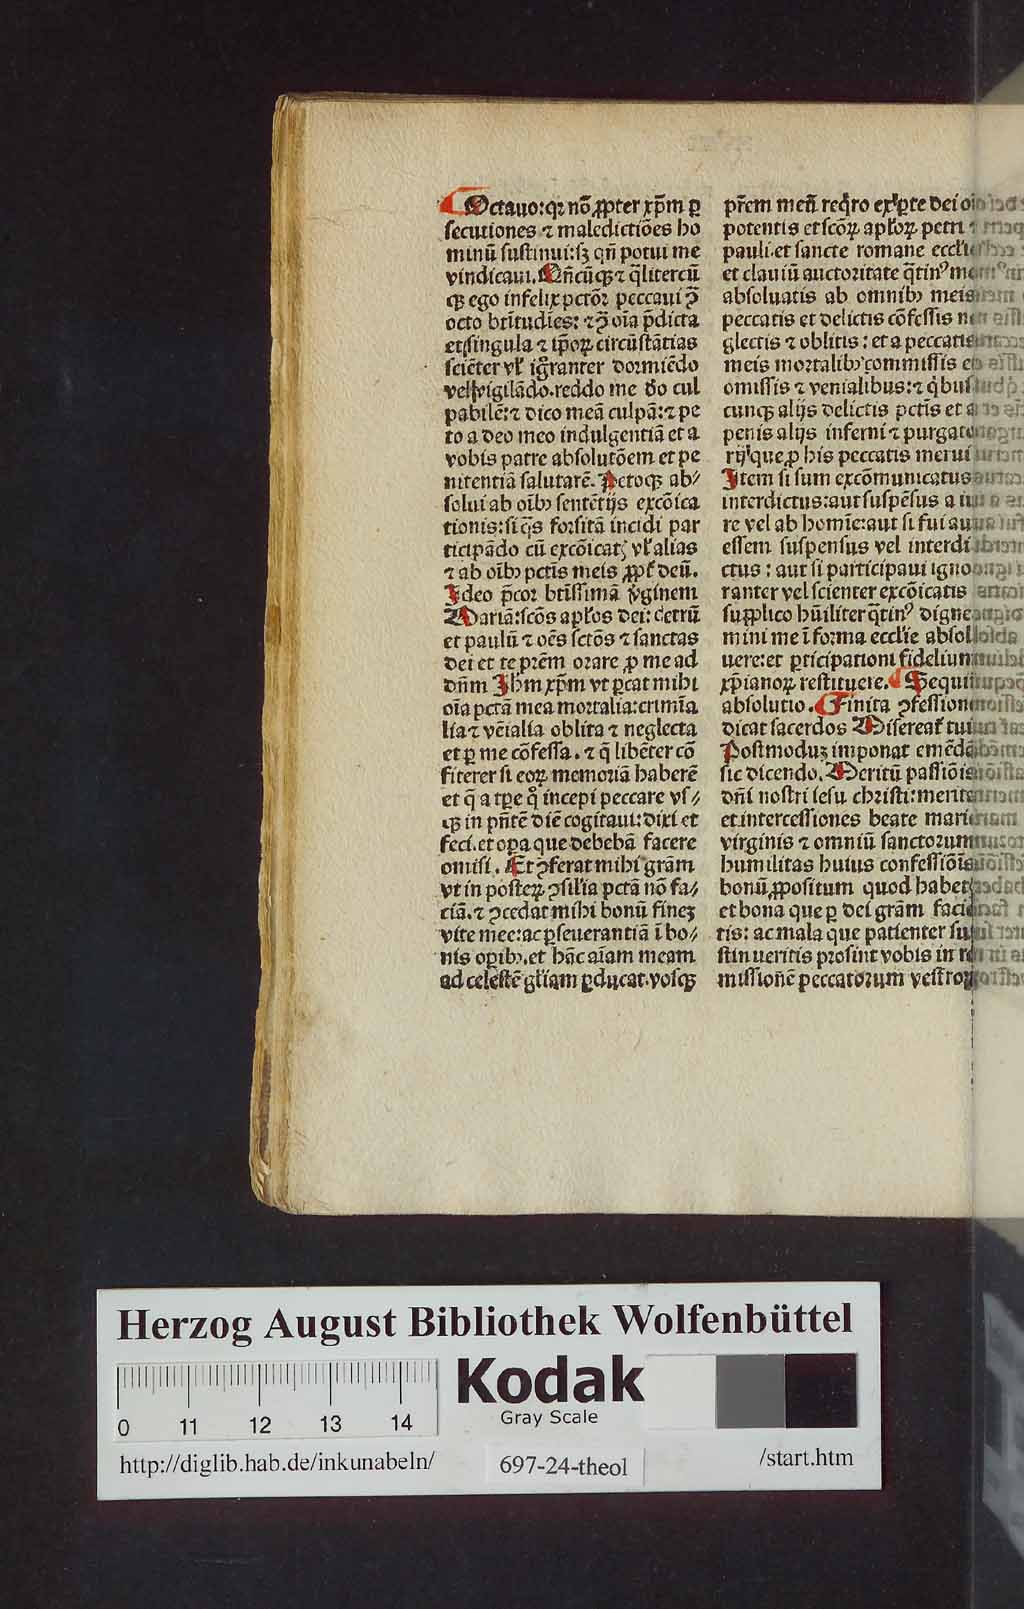 Octauo: qꝛ nõ ꝓpter xp̃m ꝑ
secutiones ⁊ maledictiões ho
minũ sustinui: sꝫ qñ potui me
vindicaui. Qñcũqꝫ ⁊ q̃litercũ
qꝫ ego infelix pctõꝛ peccaui ꝯ̃
octo br̃itudies: ⁊ ꝯ̃ oĩa p̃dicta
et singula ⁊ ip̃oꝝ circũstãtias
sciẽter vl̕ igr̃anter dormiẽdo
vel vigilãdo. reddo me deo cul
pabilẽ: ⁊ dico meã culpã: ⁊ pe
to a deo meo indulgentiã et a
vobis patre absolutõem et pe
nitentiã salutarẽ. Petoqꝫ ab⸗
solui ab oĩbꝫ sentẽtijs excõica
tionis: si q̃s forsitã incidi par
ticipãdo cũ excõicatꝭ vl̕ alias
⁊ ab oĩbꝫ pctĩs meis ꝓpt̕ deũ.
Ideo p̃cor btĩssimã v̕ginem
Mariã: scõs apl̕os dei: Petrũ
et paulũ ⁊ oẽs sctõs ⁊ sanctas
dei et te pr̃em orare ꝓ me ad
dñm Jh̃m xp̃m vt ꝑcat mihi
oĩa pctã mea mortalia: crimĩa
lia ⁊ vẽialia oblita ⁊ neglecta
et ꝑ me cõfessa. ⁊ q̃ libẽter cõ
fiterer si eoꝝ memoriã haberẽ
et q̃ a tꝑe qͦ incepi peccare vs⸗
qꝫ in pñtẽ diẽ cogitaui: dixi et
feci. et oꝑa que debebã facere
omisi. Et ꝯferat mihi grãm
vt in posteꝝ ꝯsilia pctã nõ fa⸗
ciã. ⁊ ꝯcedat mihi bonũ fineꝫ
vite mee: ac ꝑseuerantiã ĩ bo⸗
nis oꝑibꝫ. et hãc aĩam meam
ad celestẽ gl̕iam ꝑducat. vosqꝫ
pr̃em meũ reqͥro ex ꝑte dei oĩ
potentis et scõꝝ apl̕oꝝ petri ⁊
pauli. et sancte romane eccl̕ie
et clauiũ auctoritate q̃tinꝰ me
absoluatis ab omnibꝫ meis
peccatis et delictis cõfessis ne
glectis ⁊ oblitis: et a peccatis
meis mortalibꝫ commissis et
omissis ⁊ venialibus: ⁊ qͥbus
cunqꝫ alijs delictis pctis et a
penis alijs inferni ⁊ purgato
rij que ꝓ his peccatis merui
Item si sum excõmunicatus
interdictus: aut suspẽsus a iu
re vel ab homĩe: aut si fui aut
essem suspensus vel interdi
ctus: aut si participaui igno
ranter vel scienter excõicatis
supplico hũiliter q̃tinꝰ digne
mini me ĩ forma eccl̕ie absol
uere: et ꝑticipationi fidelium
xp̃ianoꝝ restituere. Sequit̕
absolutio. Finita ꝯfessione
dicat sacerdos Misereat̕ tui
Postmoduꝫ imponat emẽdã
sic dicendo. Meritũ passiõis
dñi nostri iesu christi: merita
et intercessiones beate marie
virginis ⁊ omniũ sanctorum
humilitas huius confessiõis
bonũ ꝓpositum quod habetꝭ
et bona que ꝑ dei grãm facie
tis: ac mala que patienter su
stinueritis prosint vobis in re
missionẽ peccatorum vestroꝝ
Herzog August Bibliothek Wolfenbüttel
Kodak
Gray Scale
0 11 12 13 14
http://diglib.hab.de/inkunabeln/ 697-24-theol /start.htm